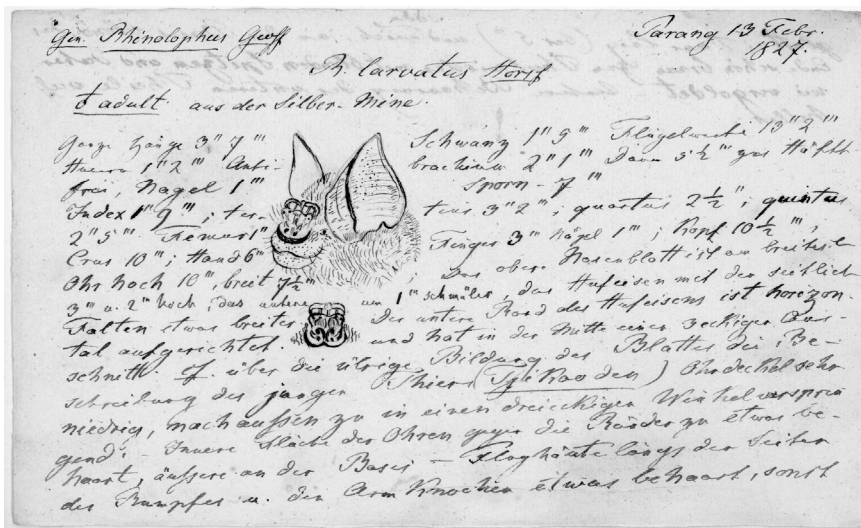 Gen. Rhinolophus Geoff
Parang 13 Febr.
1827.
R. larvatus Horsf
♀ adult. aus der Silber-Mine.
Ganze Länge 3" 7''' Schwanz 1" 9''' Flügelweite 13" 2'''
Humer. 1" 2''' Anti- brachium 2" 1''' Daum 5 ½''' zur Hälfte
frei, Nagel 1''' Sporn - 7'''
Index 1" 9'''; ter- tius 3" 2'''; quartus 2 ½"; quintus
2" 5''' Femur 1" Finger 3''' Nägel 1'''; Kopf 10 ½''',
Crus 10'''; Hand 6'''
Ohr hoch 10''', breit 7 ½'''; Das obere Nasenblatt ist am breitesten
3''' u. 2''' hoch, das untere um 1''' schmäler, das Hufeisen mit den seitlich
Falten etwas breiter. Der untere Rand des Hufeisens ist horizon-
tal aufgerichtet und hat in der Mitte einen 3eckigen Aus-
schnitt. über die übrige Bildung des Blattes die Be-
schreibung des jungen Thiers (Tjikao den) Ohrdeckel sehr
niedrig, nach aussen zu in einen dreieckigen Winkel versprin
gend. - Innere Fläche der Ohren gegen die Ränder zu etwas be-
haart, äussere an der Basis - Flughäute längs der Seiten
des Rumpfes u. den Arm Knochen etwas behaart, sonst